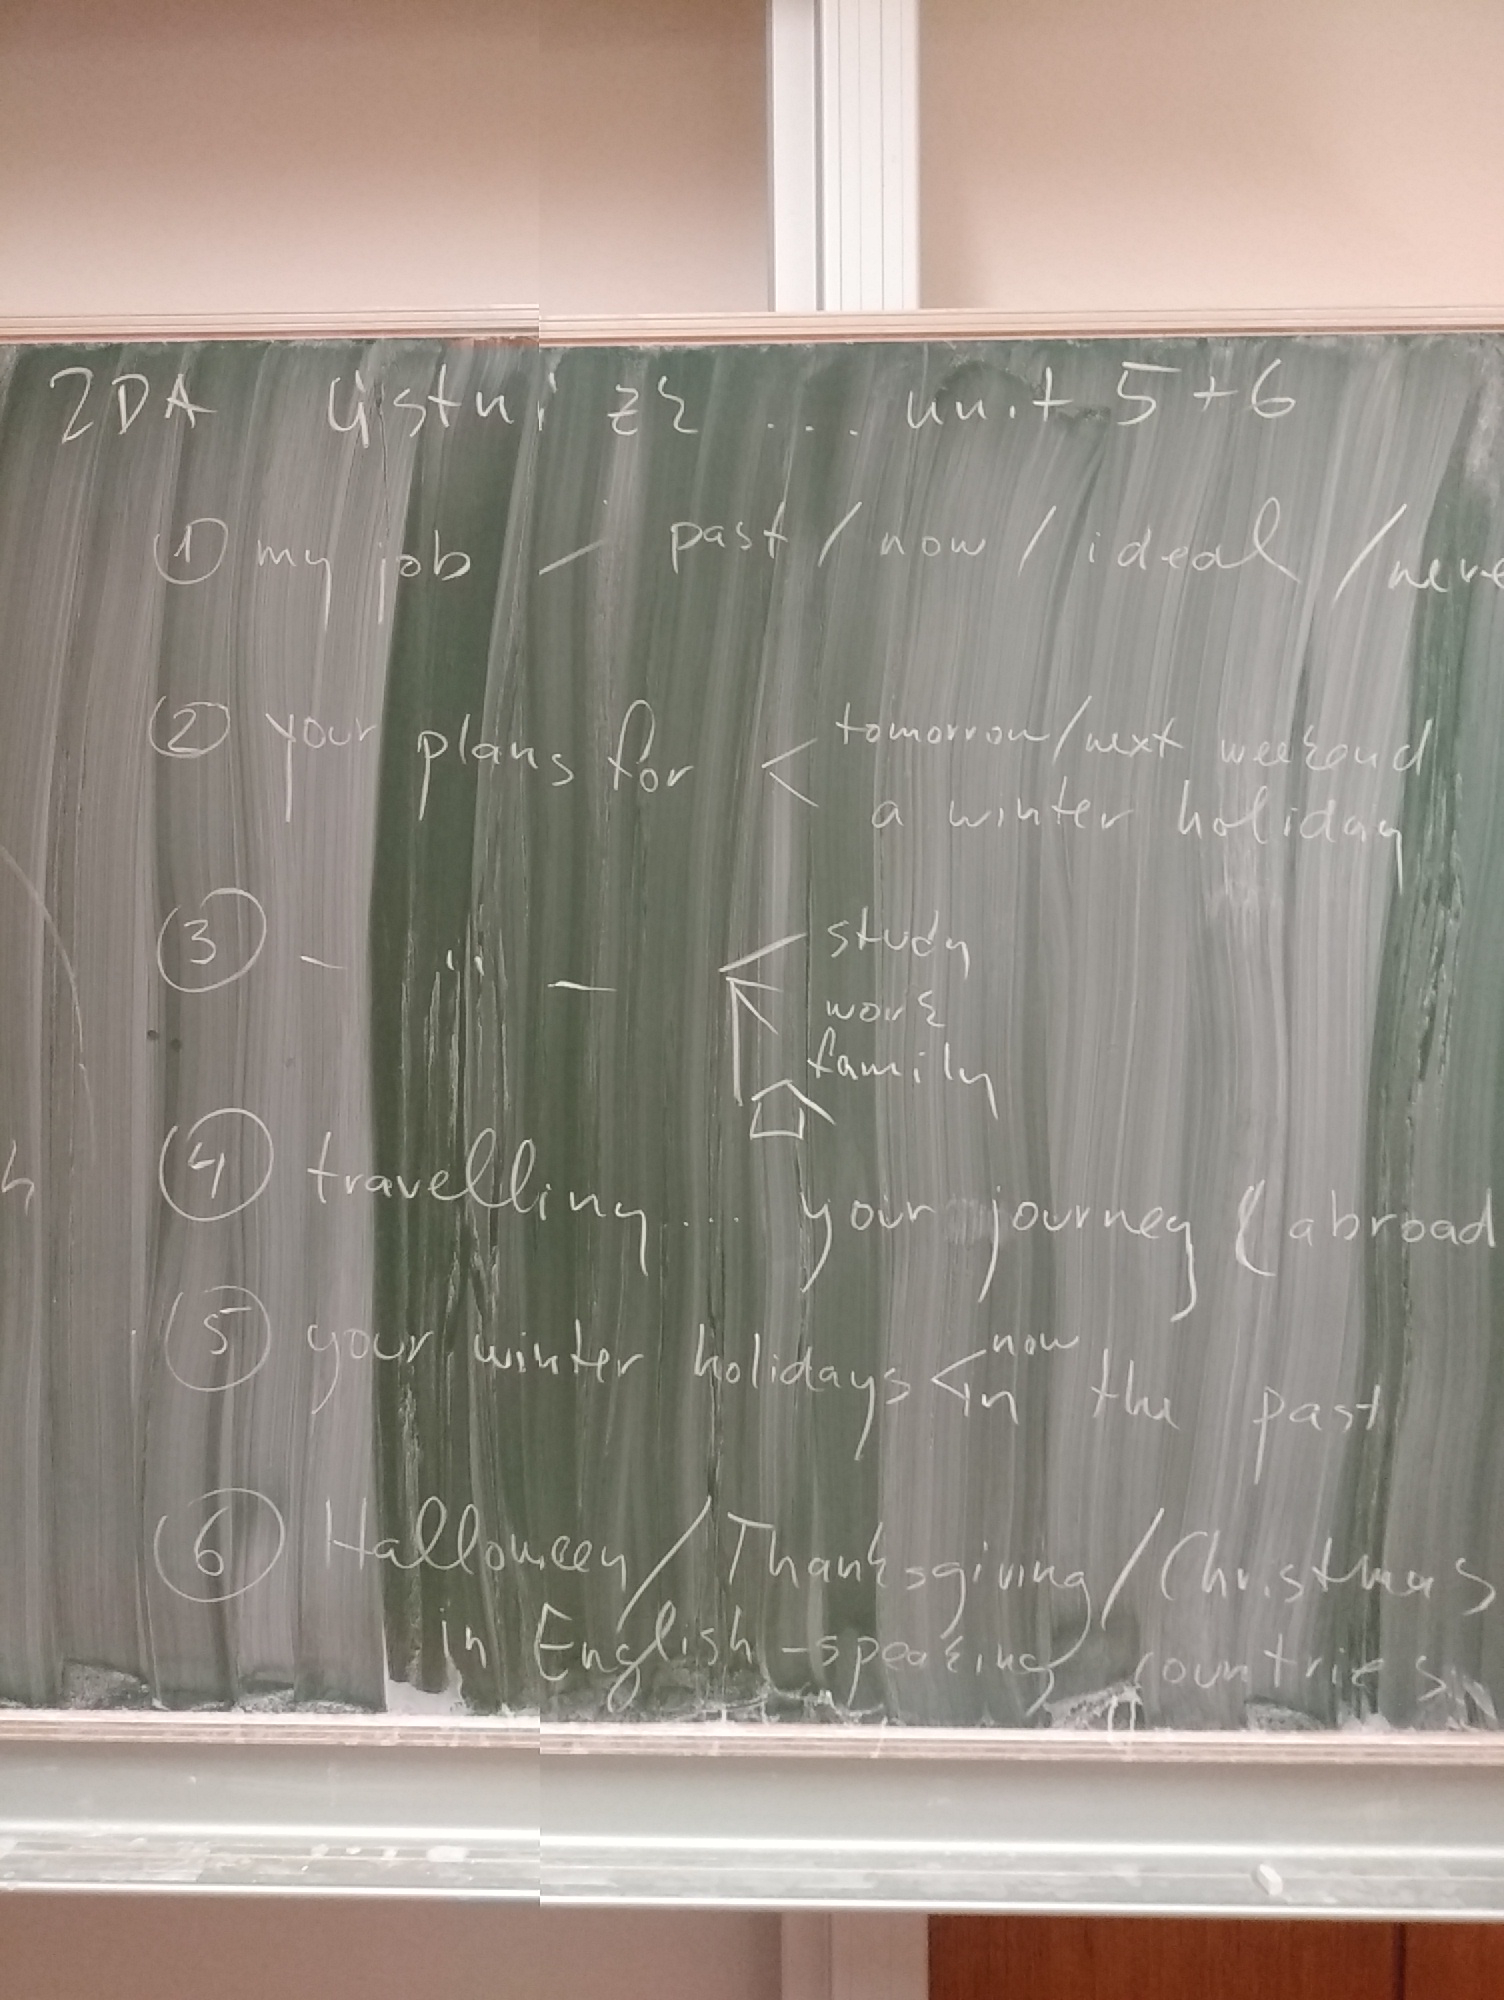 2DA ústní zk ... unit 5+6
① my job / past / now / ideal / neve
② your plans for < tomorrow/next weekend
a winter holiday
③ — " — study
work
family
④ travelling ... your journey (abroad
⑤ your winter holidays < now
in the past
⑥ Halloween / Thanksgiving / Christmas
in English-speaking countries